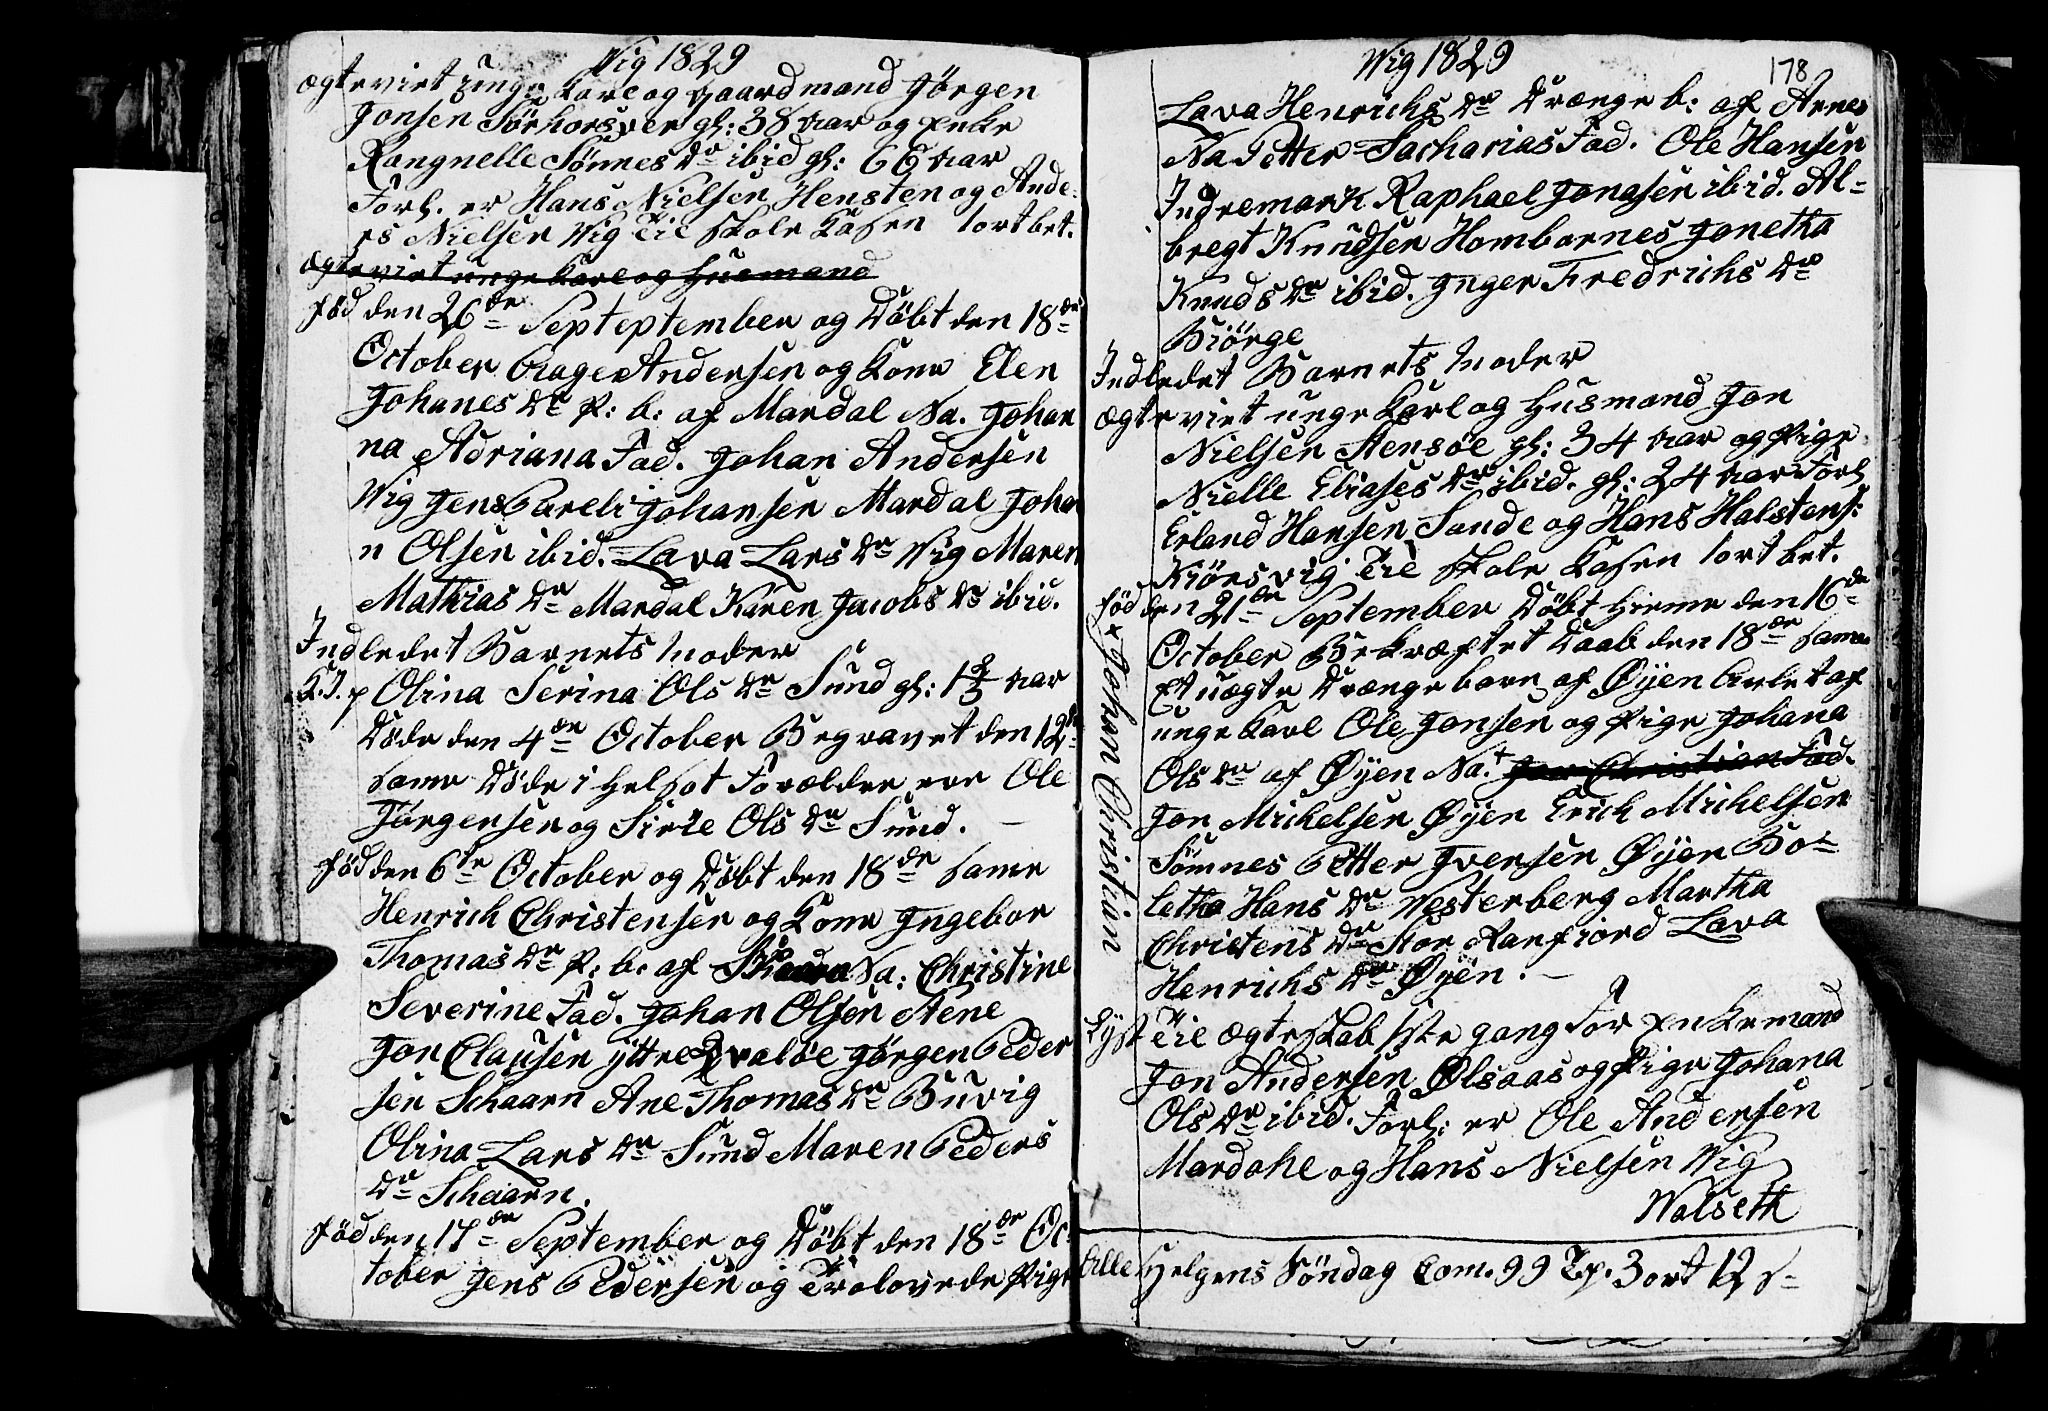 Wig 1829
ægteviet unge Karl og Gaardmand Jörgen
Jonsen Sörhorsver gl: 38 Aar og Enke
Rangnelle Sönnes Dr ibid gl: 66 Aar
Forl. er Hans Nielsen Hensten og Ande-
rs Nielsen Wig Til Skole Kasen 1 ort bet.
ægteviet unge Karl og Husmand
Föd den 26de Septeptember og Döbt den 18de
October Aage Andersen og Kone Elen
Johanes Dr P: b: af Mardal Na. Johan
na Adriana Fad. Johan Andersen
Wig Jens Pareli Johansen Mardal Joha
n Olsen ibid. Lava Lars Dr Wig Maren
Mathias Dr Mardal Karen Jacobs Dr ibid.
Indledet Barnets Moder
K. J. p Olina Serina Ols Dr Sund gl: 1 2/3 Aar
Döde den 4de October Begravet den 12de
Same Döde i Helsot Forældre ere Ole
Jörgensen og Sirie Ols Dr Sund. –
Föd den 6te October og Döbt den 18de Same
Henrich Christensen og Kone Ingebor
Thomas Dr P: b: af Na: Christine
Severine Fad. Johan Olsen
Jon Clausen ÿttre Qvalöe Jörgen Peder
sen Schaarn Ane Thomas Dr Buvig
Olina Lars Dr Sund Maren Peders
Dr Schaarn.
Föd den 17de September og Döbt den 18de Oc-
tober Jens Pedersen og Trolovede Pige
Wig 1829
178
Lava Henrichs Dr Drænge b: af Arnes
Na Petter Sacharias Fad. Ole Hansen
Indremark Raphael Jonasen ibid. Al-
bregt Knudsen Hombornes Jonetha
Knuds Dr ibid. Inger Fredrichs Dr
Biörge
Indledet Barnets Moder
ægteviet unge Karl og Husmand Jon
Nielsen Stensöe gl: 34 Aar og Pige
Nielle Eliases Dr ibid. gl: 24 Aar Forl
Erland Hansen Sande og Hans Halstens:
Kiörsvig Til Skole Kasen 1 ort bet.
Föd den 21de September Döbt Hieme den 16de
October Bekræftet Daab den 18de Same
Et uægte Drænge barn af Øÿen Avlet af
unge Karl Ole Jonsen og Pige Johana
Ols Dr af Øÿen Na. + Jon Christian Fad.
Jon Mickelsen Øÿen Erich Mickelsen
Sömnes Petter Iversen Øÿen Bo-
letha Hans Dr Westerberg Martha
Christens Dr Stor Ranfiord Lava
Henrichs Dr Øÿen. –
x Johan Christian
Lyst Til Ægteskab 1ste gang For Enkemand
Jon Andersen Ølsaas og Pige Johana
Ols Dr ibid. Forl: er Ole Andersen
Mardahl og Hans Nielsen Wig
Walseth
Alle Helgens Söndag Com. 99 Tp. 3 ort 12 s–